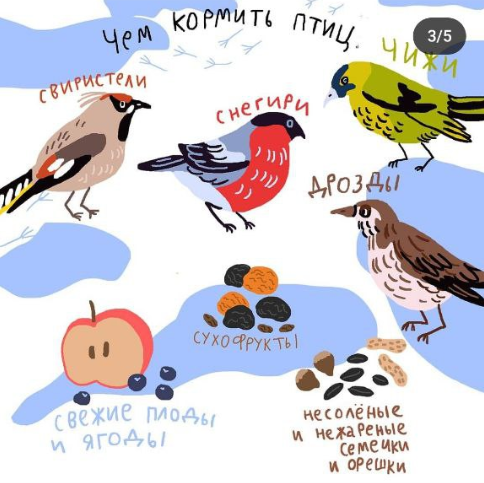 Чем кормить птиц.
3/5
свиристели
снегири
чижи
дрозды
сухофрукты
свежие плоды
и ягоды
несолёные
и нежареные
семечки
и орешки